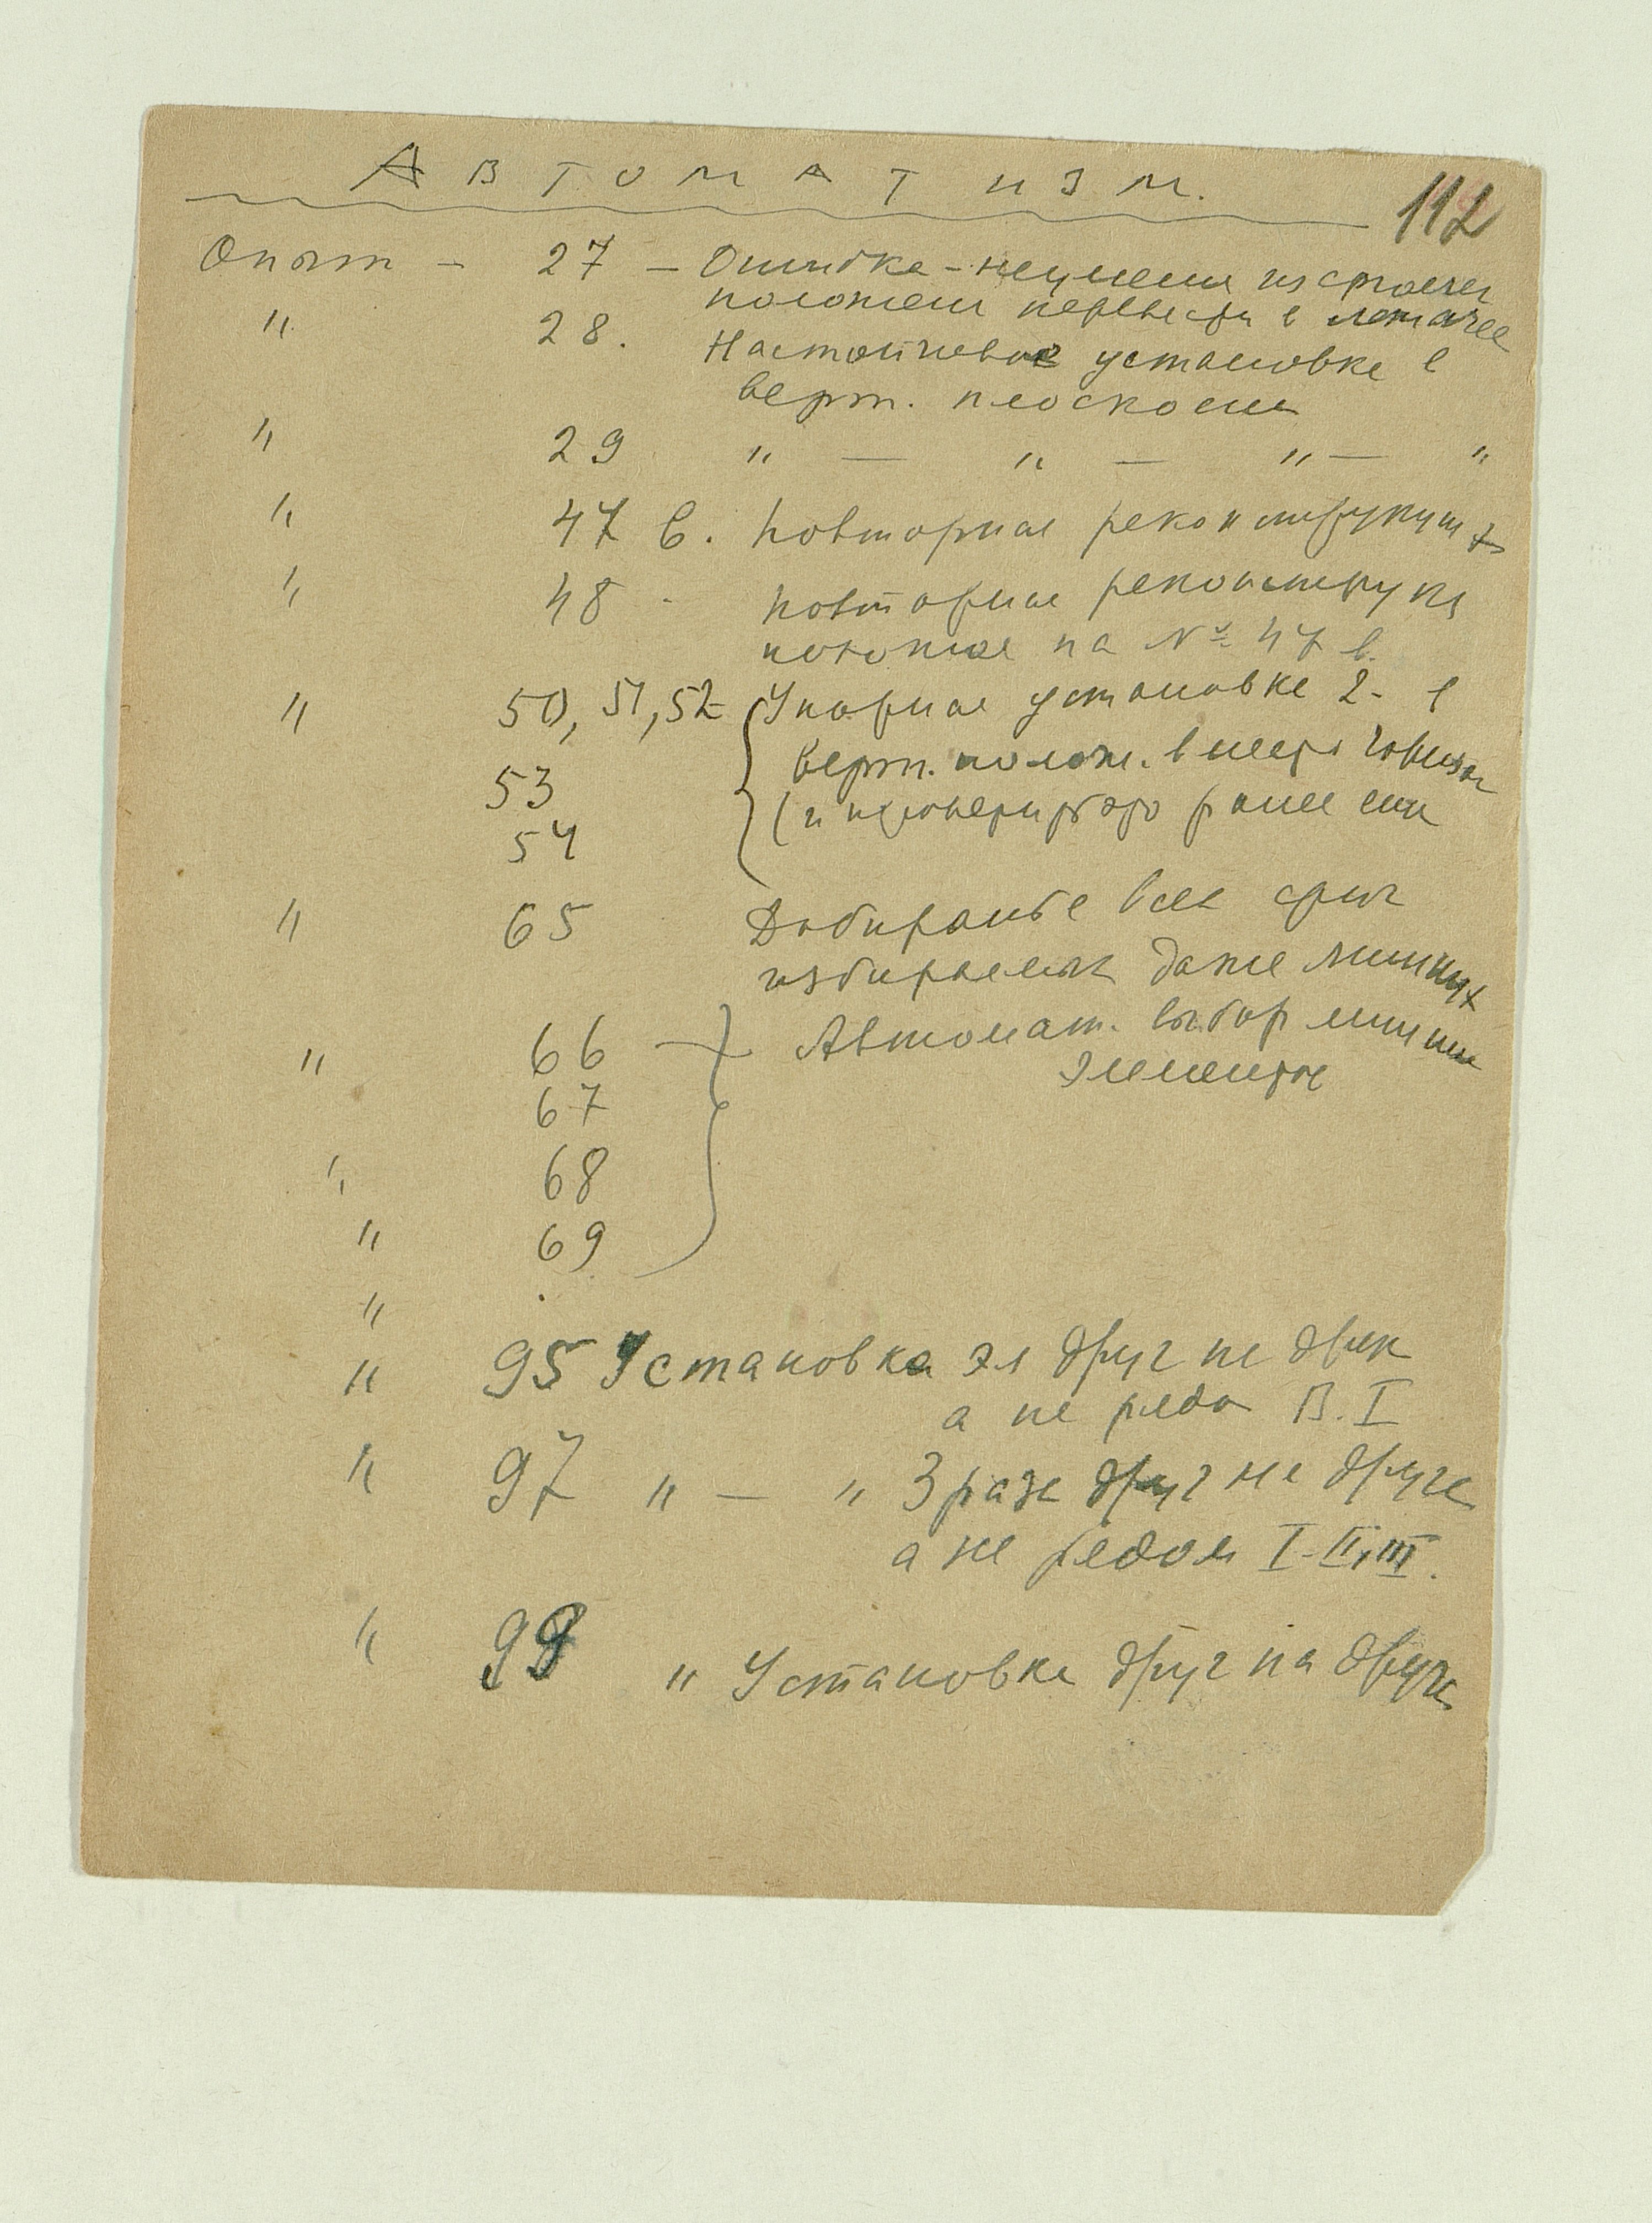 Автоматизм.
112
Опыт - 27 - Ошибка - неумение из стоячег
положен перевести в лежачее
" 28. Настойчивое установке в
верт. плоскости
" 29 " — " — " — "
" 47 в. повторная реконструкция
" 48 - повторная реконструкц
похожая на № 47 в.
" 50, 51, 52 Упорная установка 2- в
53 верт. полож. вместо горизон
54 ранее
" 65 Добирание всех
избираемых даже
" 66 Автомат. выбор
67 элементов
" 68
" 69
"
" 95 Установка эл друг на друк
а не рядо В. I
" 97 " — " 3 раза друг на друга
а не рядом I-II, III.
" 99 " Установка друг на друга